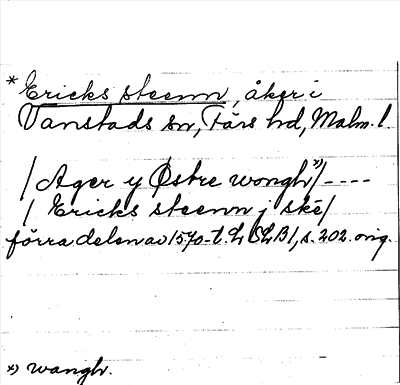 * Ericks steenn, åker i
Vanstads sn, Färs hd, Malm. l.
/ Ager y Østre wongh *)/ - - - -
/ Ericks steenn j ské/
förra delen av 1570-t. L ChB1, s. 202. orig.
*) wangh.